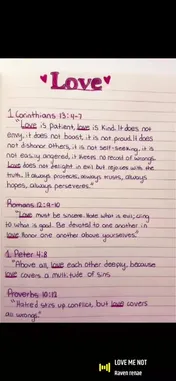 Love
1 Corinthians 13:4-7
"Love is patient, love is kind. It does not
envy, it does not boast, it is not proud. It does
not dishonor others, it is not self-seeking, it is
not easily angered, it keeps no record of wrongs.
Love does not delight in evil but rejoices with the
truth. It always protects, always trusts, always
hopes, always perseveres."
Romans 12:9-10
"Love must be sincere. Hate what is evil; cling
to what is good. Be devoted to one another in
love. Honor one another above yourselves."
1 Peter 4:8
"Above all, love each other deeply, because
love covers a multitude of sins
Proverbs 10:12
"Hatred stirs up conflict, but love covers
all wrongs."
LOVE ME NOT
Raven renae